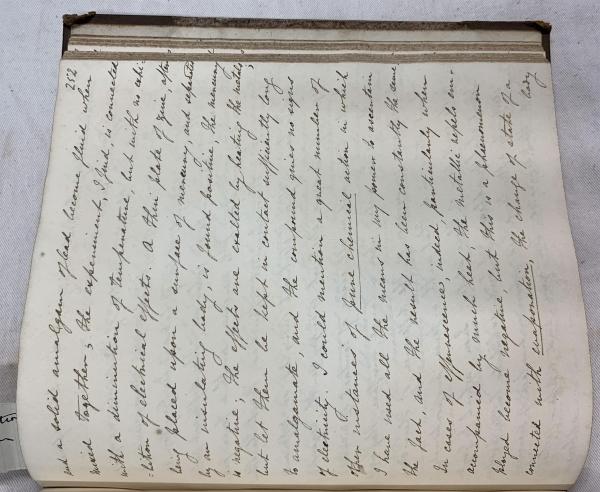 252
and a solid amalgam of lead become fluid when
mixed together; the experiment, I find, is connected
with a diminution of temperature, but with no exhi=
=bition of electrical effects. A thin plate of zinc, after
being placed upon a surface of mercury, and separated
by an insulating body, is found positive, the mercury
is negative; the effects are exalted by heating the metals;
but let them be kept in contact sufficiently long
to amalgamate, and the compound gives no signs
of electricity. I could mention a great number of
other instances of pure chemical action in which
I have used all the means in my power to ascertain
the fact, and the result has been constantly the same
In cases of effervescence, indeed, particularly when
accompanied by much heat the metallic vessels em=
ployed become negative but this is a phenomenon
connected with evaporation, the change of state of a
body